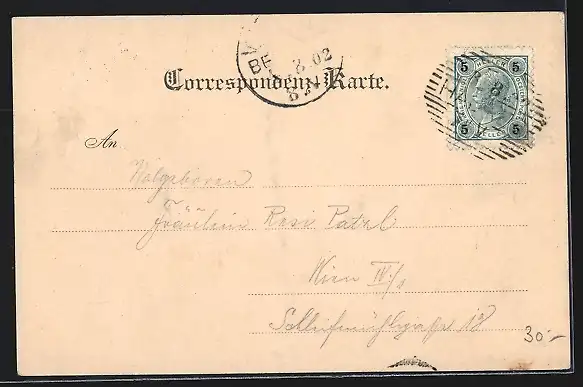 BE 8 02
Correspondenz-Karte.
5 5
5 HELLER 5
An
Wolgeboren
Fräulein Resi Patzl
Wien IV/1
Schleifmühlgasse 18
30.-